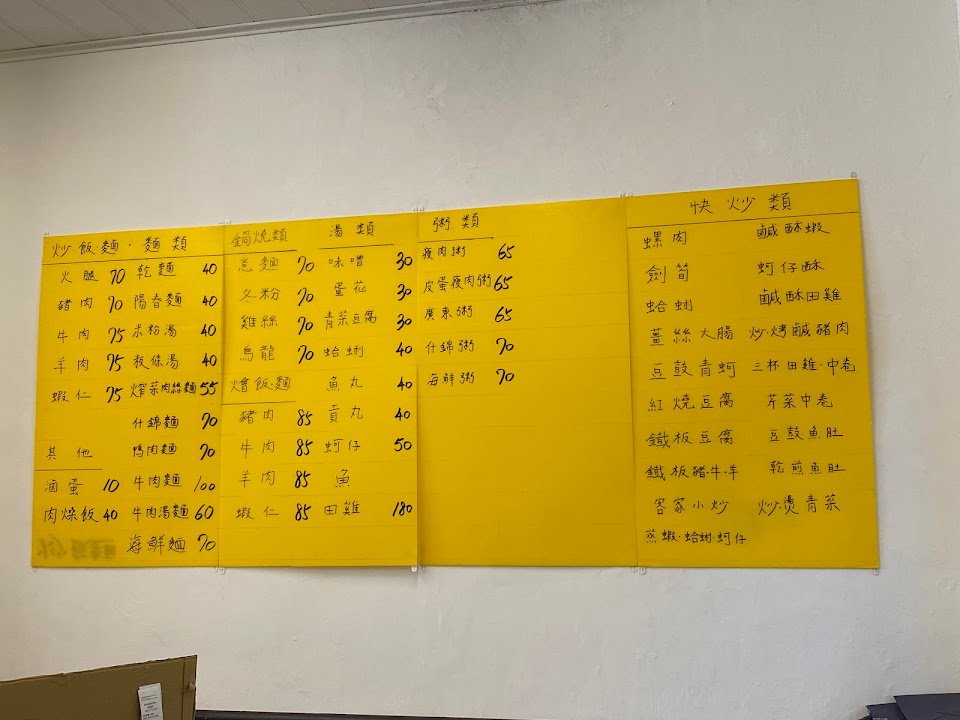 炒飯麵·麵類
火腿 70 乾麵 40
豬肉 70 陽春麵 40
牛肉 75 米粉湯 40
羊肉 75 板條湯 40
蝦仁 75 榨菜肉絲麵 55
什錦麵 70
其他 鴨肉麵 70
滷蛋 10 牛肉麵 100
肉燥飯 40 牛肉湯麵 60
海鮮麵 70
鍋燒類 湯類
意麵 70 味噌 30
冬粉 70 蛋花 30
雞絲 70 青菜豆腐 30
烏龍 70 蛤蜊 40
燴飯·麵 魚丸 40
豬肉 85 貢丸 40
牛肉 85 蚵仔 50
羊肉 85 魚
蝦仁 85 田雞 180
粥類
瘦肉粥 65
皮蛋瘦肉粥 65
廣東粥 65
什錦粥 70
海鮮粥 70
快炒類
螺肉 鹹酥蝦
劍筍 蚵仔酥
蛤蜊 鹹酥田雞
薑絲大腸 炒·烤鹹豬肉
豆鼓青蚵 三杯田雞·中卷
紅燒豆腐 芹菜中卷
鐵板豆腐 豆鼓魚肚
鐵板豬·牛·羊 乾煎魚肚
客家小炒 炒·燙青菜
蒸蝦·蛤蜊·蚵仔